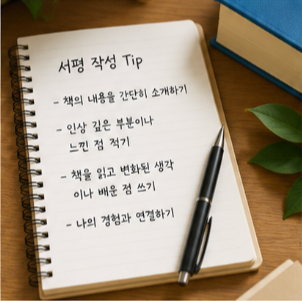 서평 작성 Tip
- 책의 내용을 간단히 소개하기
- 인상 깊은 부분이나
느낀 점 적기
- 책을 읽고 변화된 생각
이나 배운 점 쓰기
- 나의 경험과 연결하기